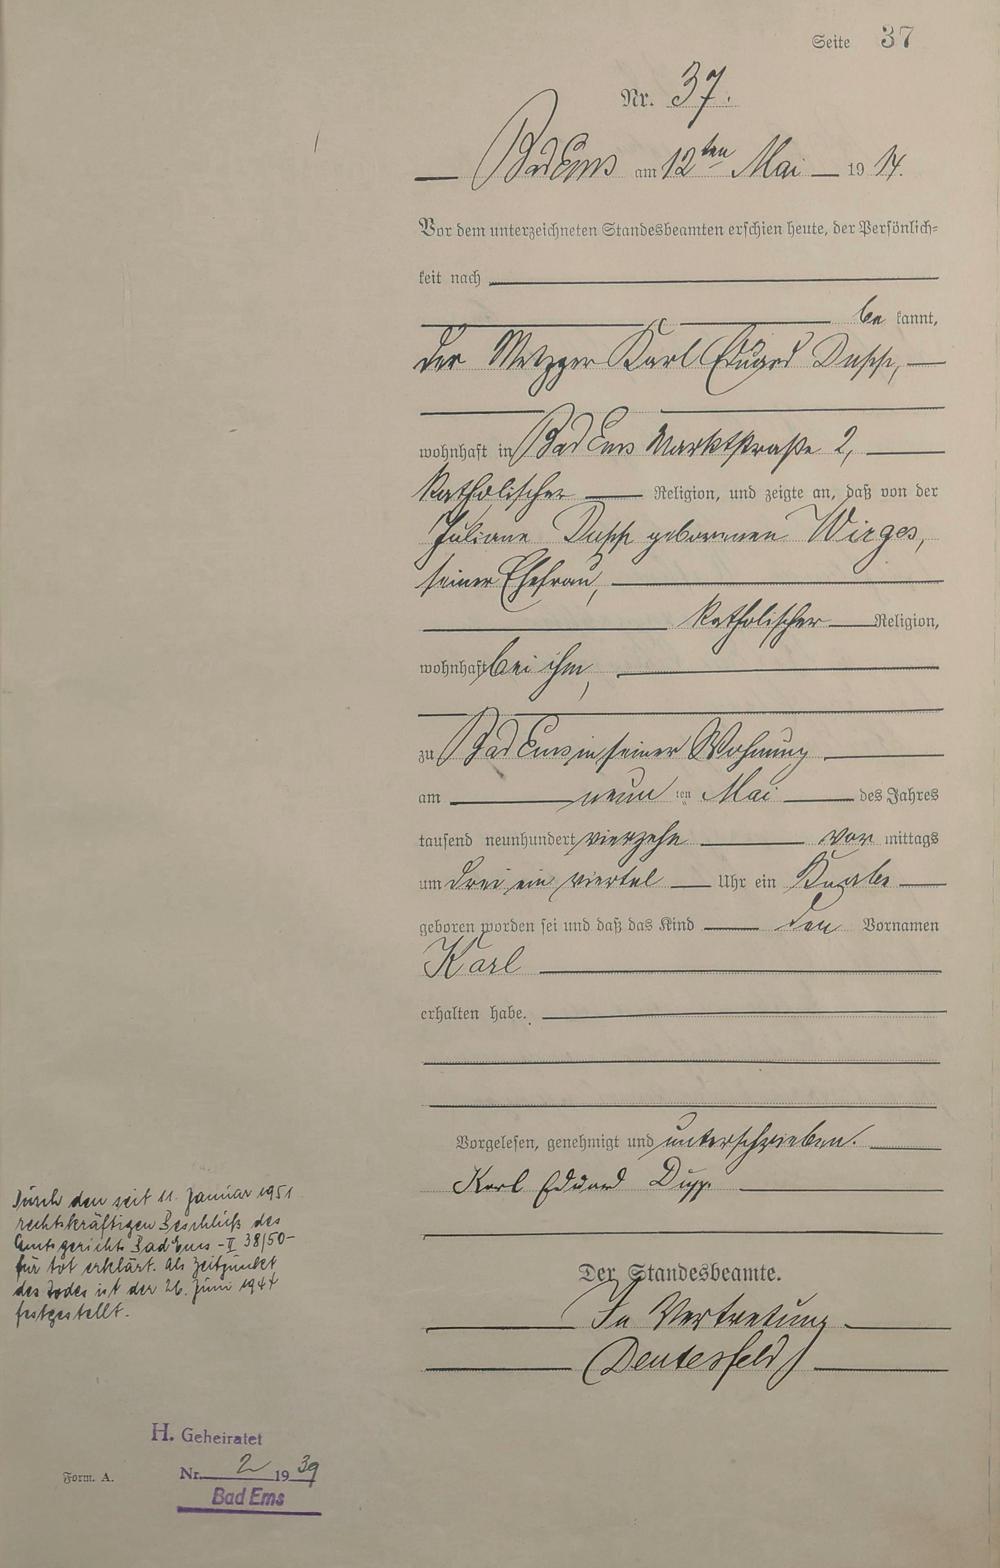 Seite 37
Nr. 37.
Bad Ems am 12ten Mai 19 14.
Vor dem unterzeichneten Standesbeamten erschien heute, der Persönlich=
keit nach
be kannt,
der Metzger Karl Eduard Dupp,
wohnhaft in Bad Ems Marktstraße 2,
katholischer Religion, und zeigte an, daß von der
Juliane Dupp geborenen Wirges,
seiner Ehefrau,
katholischer Religion,
wohnhaft bei ihm,
zu Bad Ems in seiner Wohnung
am neun ten Mai des Jahres
tausend neunhundert vierzehn vor mittags
um drei ein viertel Uhr ein Knabe
geboren worden sei und daß das Kind den Vornamen
Karl
erhalten habe.
Vorgelesen, genehmigt und unterschrieben.
Karl Eduard Dupp
Der Standesbeamte.
In Vertretung
Deutesfeld
Durch den seit 11. Januar 1951
rechtskräftigen Beschluß des
Amtsgerichts Bad Ems - II 38/50 -
für tot erklärt. Als Zeitpunkt
des Todes ist der 26. Juni 1944
festgestellt.
H. Geheiratet
Nr. 2 19 39
Bad Ems
Form. A.